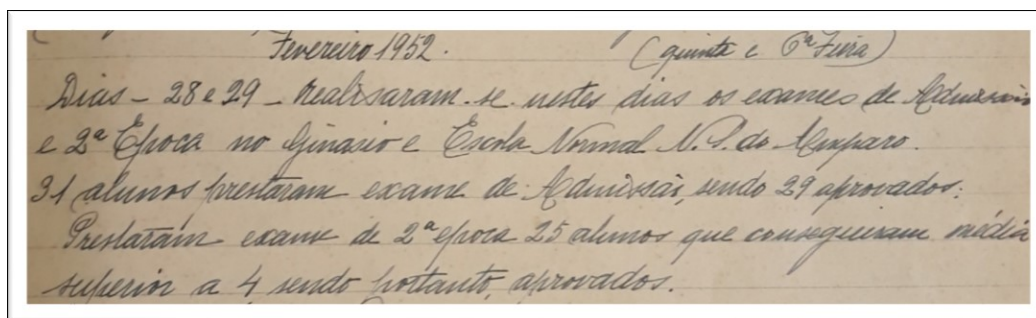 Fevereiro 1952. (quinta e 6ª Feira)
Dias - 28 e 29 - Realisaram-se nestes dias os exames de Admissão
e 2ª Época no Ginasio e Escola Normal N. S. do Amparo.
31 alunos prestaram exame de Admissão, sendo 29 aprovados.
Prestaram exame de 2ª epoca 25 alunos que conseguiram média
superior a 4 sendo portanto, aprovados.